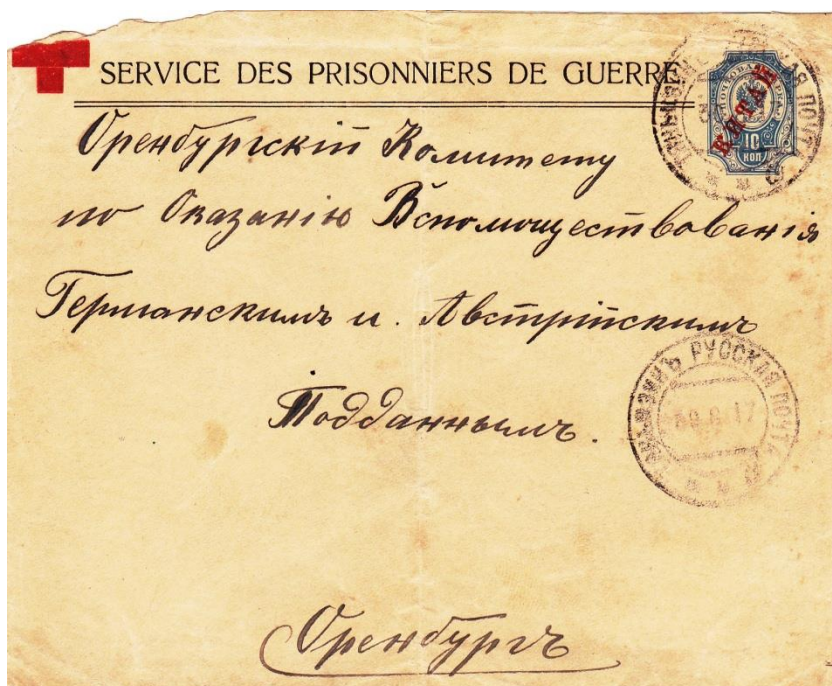 SERVICE DES PRISONNIERS DE GUERRE
КИТАЙ
10
КОП
Оренбургскій Комитету
по Оказанію Вспомоществованія
Германскимъ и. Австрійскимъ
Подданнымъ.
РУССКАЯ ПОЧТА
6 17
Оренбургъ